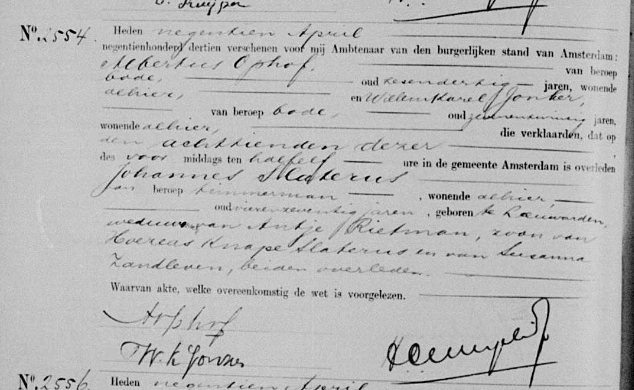 Nº. 2554. Heden negentien April
negentienhonderd dertien verschenen voor mij Ambtenaar van den burgerlijken stand van Amsterdam:
Albertus Ophof, van beroep
bode, oud zesendertig jaren, wonende
alhier, en Willem Karel Jonker,
van beroep bode, oud zevenentwintig jaren,
wonende alhier, die verklaarden, dat op
den achttienden dezer
des voor middags ten half elf ure in de gemeente Amsterdam is overleden
Johannes Slaterus
van beroep timmerman, wonende alhier,
oud vierenzeventig jaren, geboren te Leeuwarden,
weduwnaar van Antje Rietman, zoon van
Knape Slaterus en van Susanna
Zandleven, beiden overleden.
Waarvan akte, welke overeenkomstig de wet is voorgelezen.
A Ophof
W. K. Jonker
Nº. 2556. Heden negentien April